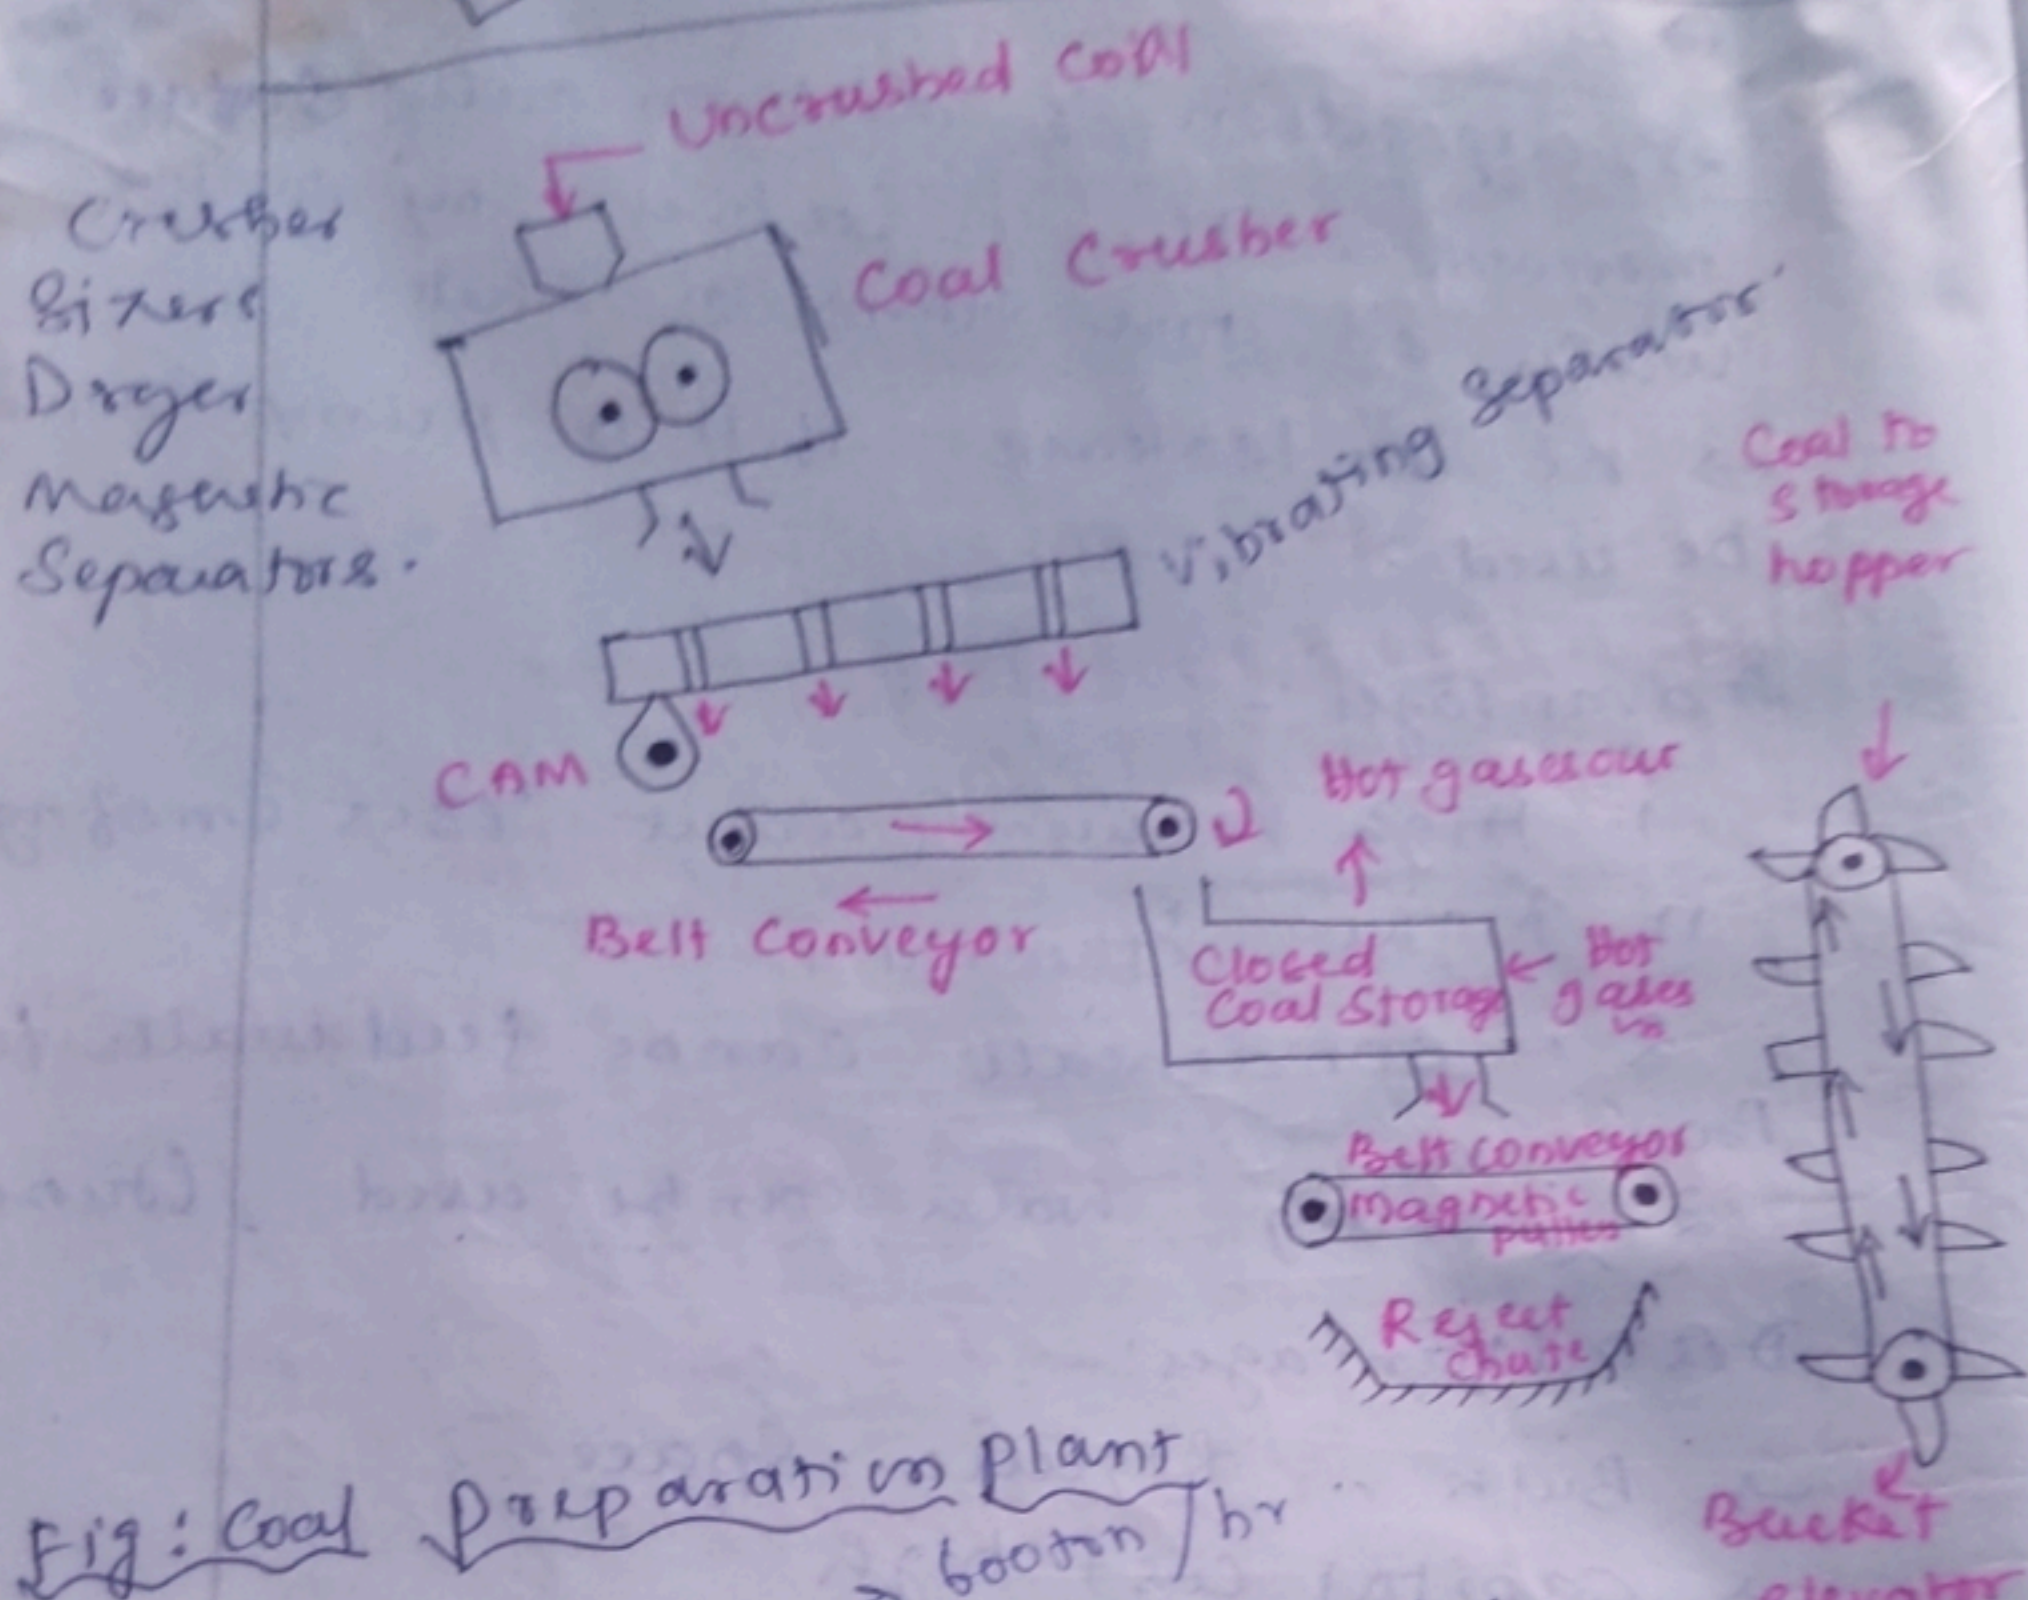 Uncrushed Coal
Crusher
Sizers
Dryer
Magnetic
Separators.
Coal Crusher
Vibrating Separator
Coal to
storage
hopper
CAM
Belt Conveyor
Hot gases out
Closed
Coal Storage
Hot
gases
in
Belt conveyor
Magnetic
pulley
Reject
chute
Bucket
elevator
Fig: Coal Preparation Plant
600 ton/hr